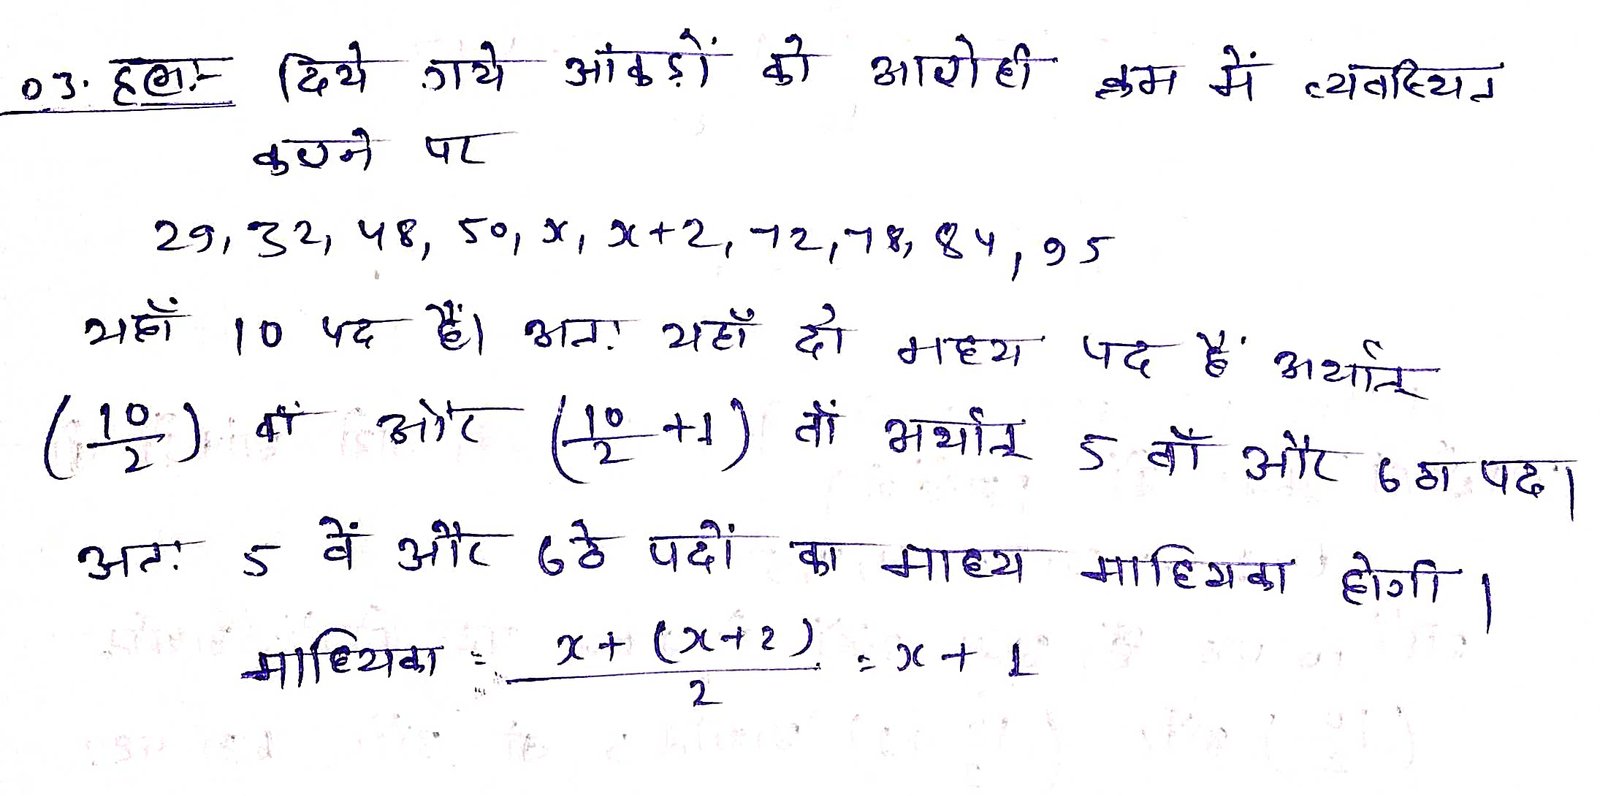 03. हलः- दिये गये आंकड़ों को आरोही क्रम में व्यवस्थित
करने पर
29, 32, 48, 50, x, x+2, 72, 78, 84, 95
यहाँ 10 पद हैं। अतः यहाँ दो मध्य पद हैं अर्थात्
(10/2) वां और (10/2 +1) वाँ अर्थात् 5 वाँ और 6 ठा पद।
अतः 5 वें और 6ठे पदों का माध्य माध्यिका होगी।
माध्यिका = x + (x+2) / 2 = x + 1